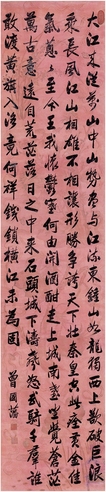 大江來從萬山中山勢盡與江流東鍾山如龍獨西上欲破巨浪
乘長風江山相雄不相讓形勝爭誇天下壯秦皇空此瘞黃金佳
氣蔥蔥至今王我懷鬱塞何由開酒酣走上城南臺坐覺蒼茫
萬古意遠自荒煙落日之中來石頭城下濤聲怒武騎千群誰
敢渡黃旗入洛竟何祥鐵鎖橫江未為固
曾國藩